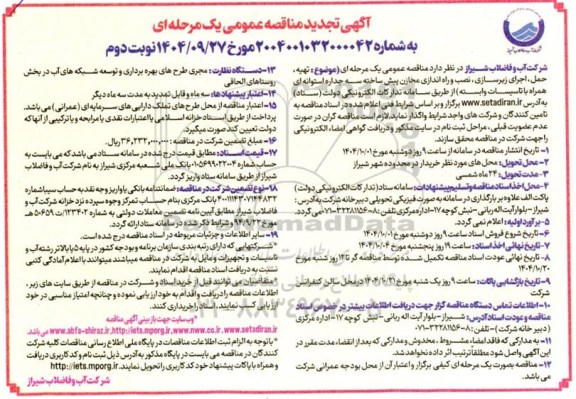 آگهی تجدید مناقصه عمومی یک مرحله ای
به شماره ۲۰۰۴۰۰۱۰۳۲۰۰۰۰۴۲ مورخ ۱۴۰۴/۰۹/۲۷ نوبت دوم
شرکت آب و فاضلاب شیراز در نظر دارد مناقصه عمومی یک مرحله ای (موضوع: تهیه،
حمل، اجرای زیرسازی، نصب و راه اندازی مخازن پیش ساخته سه جداره استوانه ای
همراه با تاسیسات وابسته) از طریق سامانه تدارکات الکترونیکی دولت (ستاد)
به آدرس www.setadiran.ir برگزار و بر اساس شرایط فنی اعلام شده در اسناد مناقصه به
تامین کنندگان و شرکت های واجد شرایط واگذار نماید. لازم است مناقصه گران در صورت
عدم عضویت قبلی، مراحل ثبت نام در سایت مذکور و دریافت گواهی امضاء الکترونیکی
را جهت شرکت در مناقصه محقق سازند.
۱- تاریخ انتشار مناقصه در سامانه: از ساعت ۹ روز دوشنبه مورخ ۱۴۰۴/۱۰/۰۱
۲- محل تحویل: محل های مورد نظر خریدار در محدوده شهر شیراز
۳- مدت تحویل: ۲۴ ماه شمسی
۴- محل اخذ اسناد مناقصه و تسلیم پیشنهادات: سامانه ستاد (تدارکات الکترونیکی دولت)
پاکت الف علاوه بر بارگذاری در سامانه به صورت فیزیکی تحویل دبیرخانه شرکت به آدرس:
شیراز- بلوار آیت اله ربانی - نبش کوچه ۱۷- اداره مرکزی تلفن: ۰۸-۳۲۲۸۱۱۵۶-۰۷۱ می گردد.
۵- برآورد اولیه: اعلام نمی گردد.
۶- تاریخ شروع فروش اسناد: از ساعت ۹ روز دوشنبه مورخ ۱۴۰۴/۱۰/۰۱
۷- تاریخ نهائی اخذ اسناد: ساعت ۱۹ روز پنجشنبه مورخ ۱۴۰۴/۱۰/۰۴
۸- تاریخ نهائی عودت اسناد مناقصه تکمیل شده توسط مناقصه گر: ۱۲:۳۵ روز شنبه مورخ
۱۴۰۴/۱۰/۲۰
۹- تاریخ بازگشایی پاکات: ساعت ۹ روز یک شنبه مورخ ۱۴۰۴/۱۰/۲۱ در محل سالن کنفرانس
شرکت
۱۰- اطلاعات تماس دستگاه مناقصه گزار جهت دریافت اطلاعات بیشتر در خصوص اسناد
مناقصه و عودت اسناد: آدرس: شیراز- بلوار آیت اله ربانی - نبش کوچه ۱۷- اداره مرکزی
(دبیرخانه شرکت) - تلفن: ۰۸-۳۲۲۸۱۱۵۶-۰۷۱
۱۱- به مدارکی که فاقد امضاء، مشروط، مخدوش و مدارکی که بعد از انقضاء مدت مقرر در
این آگهی واصل شود مطلقا ترتیب اثر داده نخواهد شد.
۱۲- مناقصه بصورت یک مرحله ای کیفی برگزار و اعتبار آن از محل بودجه عمرانی شرکت
می باشد.
۱۳- دستگاه نظارت: مجری طرح های بهره برداری و توسعه شبکه های آب در بخش
روستاهای الحاقی
۱۴- اعتبار پیشنهادها: سه ماه و قابل تمدید به مدت سه ماه دیگر
۱۵- اعتبار مناقصه از محل طرح های تملک دارایی های سرمایه ای (عمرانی) می باشد.
پرداخت از طریق اسناد خزانه اسلامی یا اعتبارات نقدی یا مرابحه و یا ترکیبی از آنها که
دولت تعیین کند صورت میگیرد.
۱۶- مبلغ تضمین شرکت در مناقصه: ۳۶,۲۳۲,۰۰۰,۰۰۰ ریال.
۱۷- قیمت اسناد: مطابق قیمت درج شده در سامانه ستاد می باشد که می بایست به
حساب شماره ۰۱۰۵۶۹۹۰۲۲۰۰۴ بانک ملی شعبه مرکزی شیراز به نام شرکت آب و فاضلاب
شیراز از طریق سامانه ستاد واریز گردد.
۱۸- نوع تضمین شرکت در مناقصه: ضمانتنامه بانکی یا واریز وجه نقد به حساب سیبا شماره
بانک مرکزی بنام حساب تمرکز وجوه سپرده نزد خزانه شرکت آب و
فاضلاب شیراز مطابق آیین نامه تضمین معاملات دولتی به شماره ۱۲۳۴۰۲/ت۵۰۶۵۹هـ
مورخ ۹۴/۰۹/۲۲ مطابق شرایط ذکر شده در سامانه ستاد ارائه گردد.
۱۹- سایر اطلاعات و جزئیات مربوطه در اسناد مناقصه درج شده است.
* شرکتهایی که دارای رتبه بندی سازمان برنامه و بودجه کشور در پایه ۵ یا بالاتر رشته آب و
تاسیسات و تجهیزات و مایل به شرکت در مناقصه میباشند میتوانند با اعلام آمادگی کتبی
نسبت به دریافت اسناد مناقصه اقدام نمایند.
* متقاضیان می توانند قبل از خرید اسناد و شرکت در مناقصه از طریق سایت های زیر،
اطلاعات مناقصه را دریافت و اقدام به خود ارزیابی نموده و چنانچه امتیاز مناسبی در خود
ارزیابی کسب نمایند، اسناد را خریداری کنند.
* وب سایت جهت بازبینی آگهی مناقصه
www.abfa-shiraz.ir,http://iets.mporg.ir,www.nww.co.ir, www.setadiran.ir می باشد
* با توجه به الزام ثبت اطلاعات مناقصات در پایگاه ملی اطلاع رسانی مناقصات کلیه شرکت
کنندگان در مناقصه می بایست در پایگاه مذکور به آدرس ذیل ثبت نام و کد کاربری دریافت
و همراه با پاکات پیشنهاد خود کد کاربری را تحویل نمایند. http://iets.mporg.ir
شرکت آب و فاضلاب شیراز